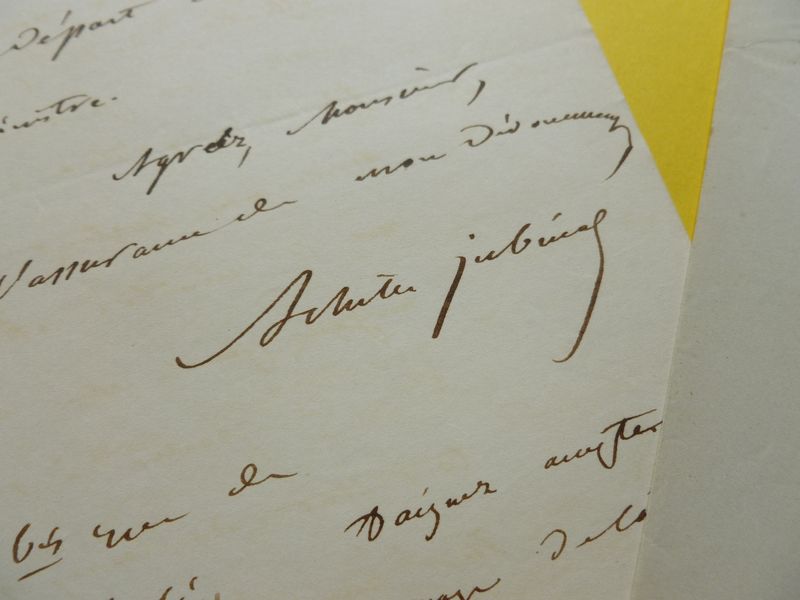 Départ
Agréez, Monsieur,
l'assurance de mon dévouement
Achille jubinal
que de
Daignez accepter
de la